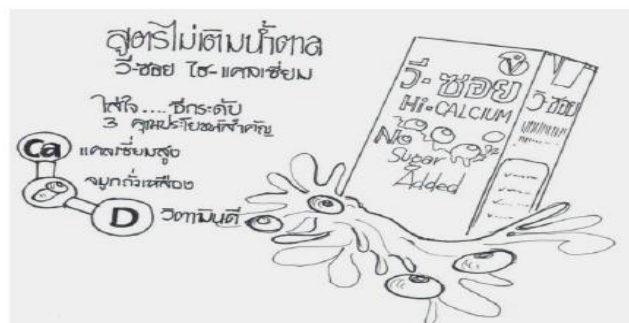 สูตรไม่เติมน้ำตาล
วี-ซอย ไฮ-แคลเซียม
ใส่ใจ....อีกระดับ
3 คุณประโยชน์สำคัญ
Ca แคลเซียมสูง
จมูกถั่วเหลือง
D วิตามินดี
วี-ซอย
Hi-CALCIUM
No
Sugar
Added
วี-ซอย